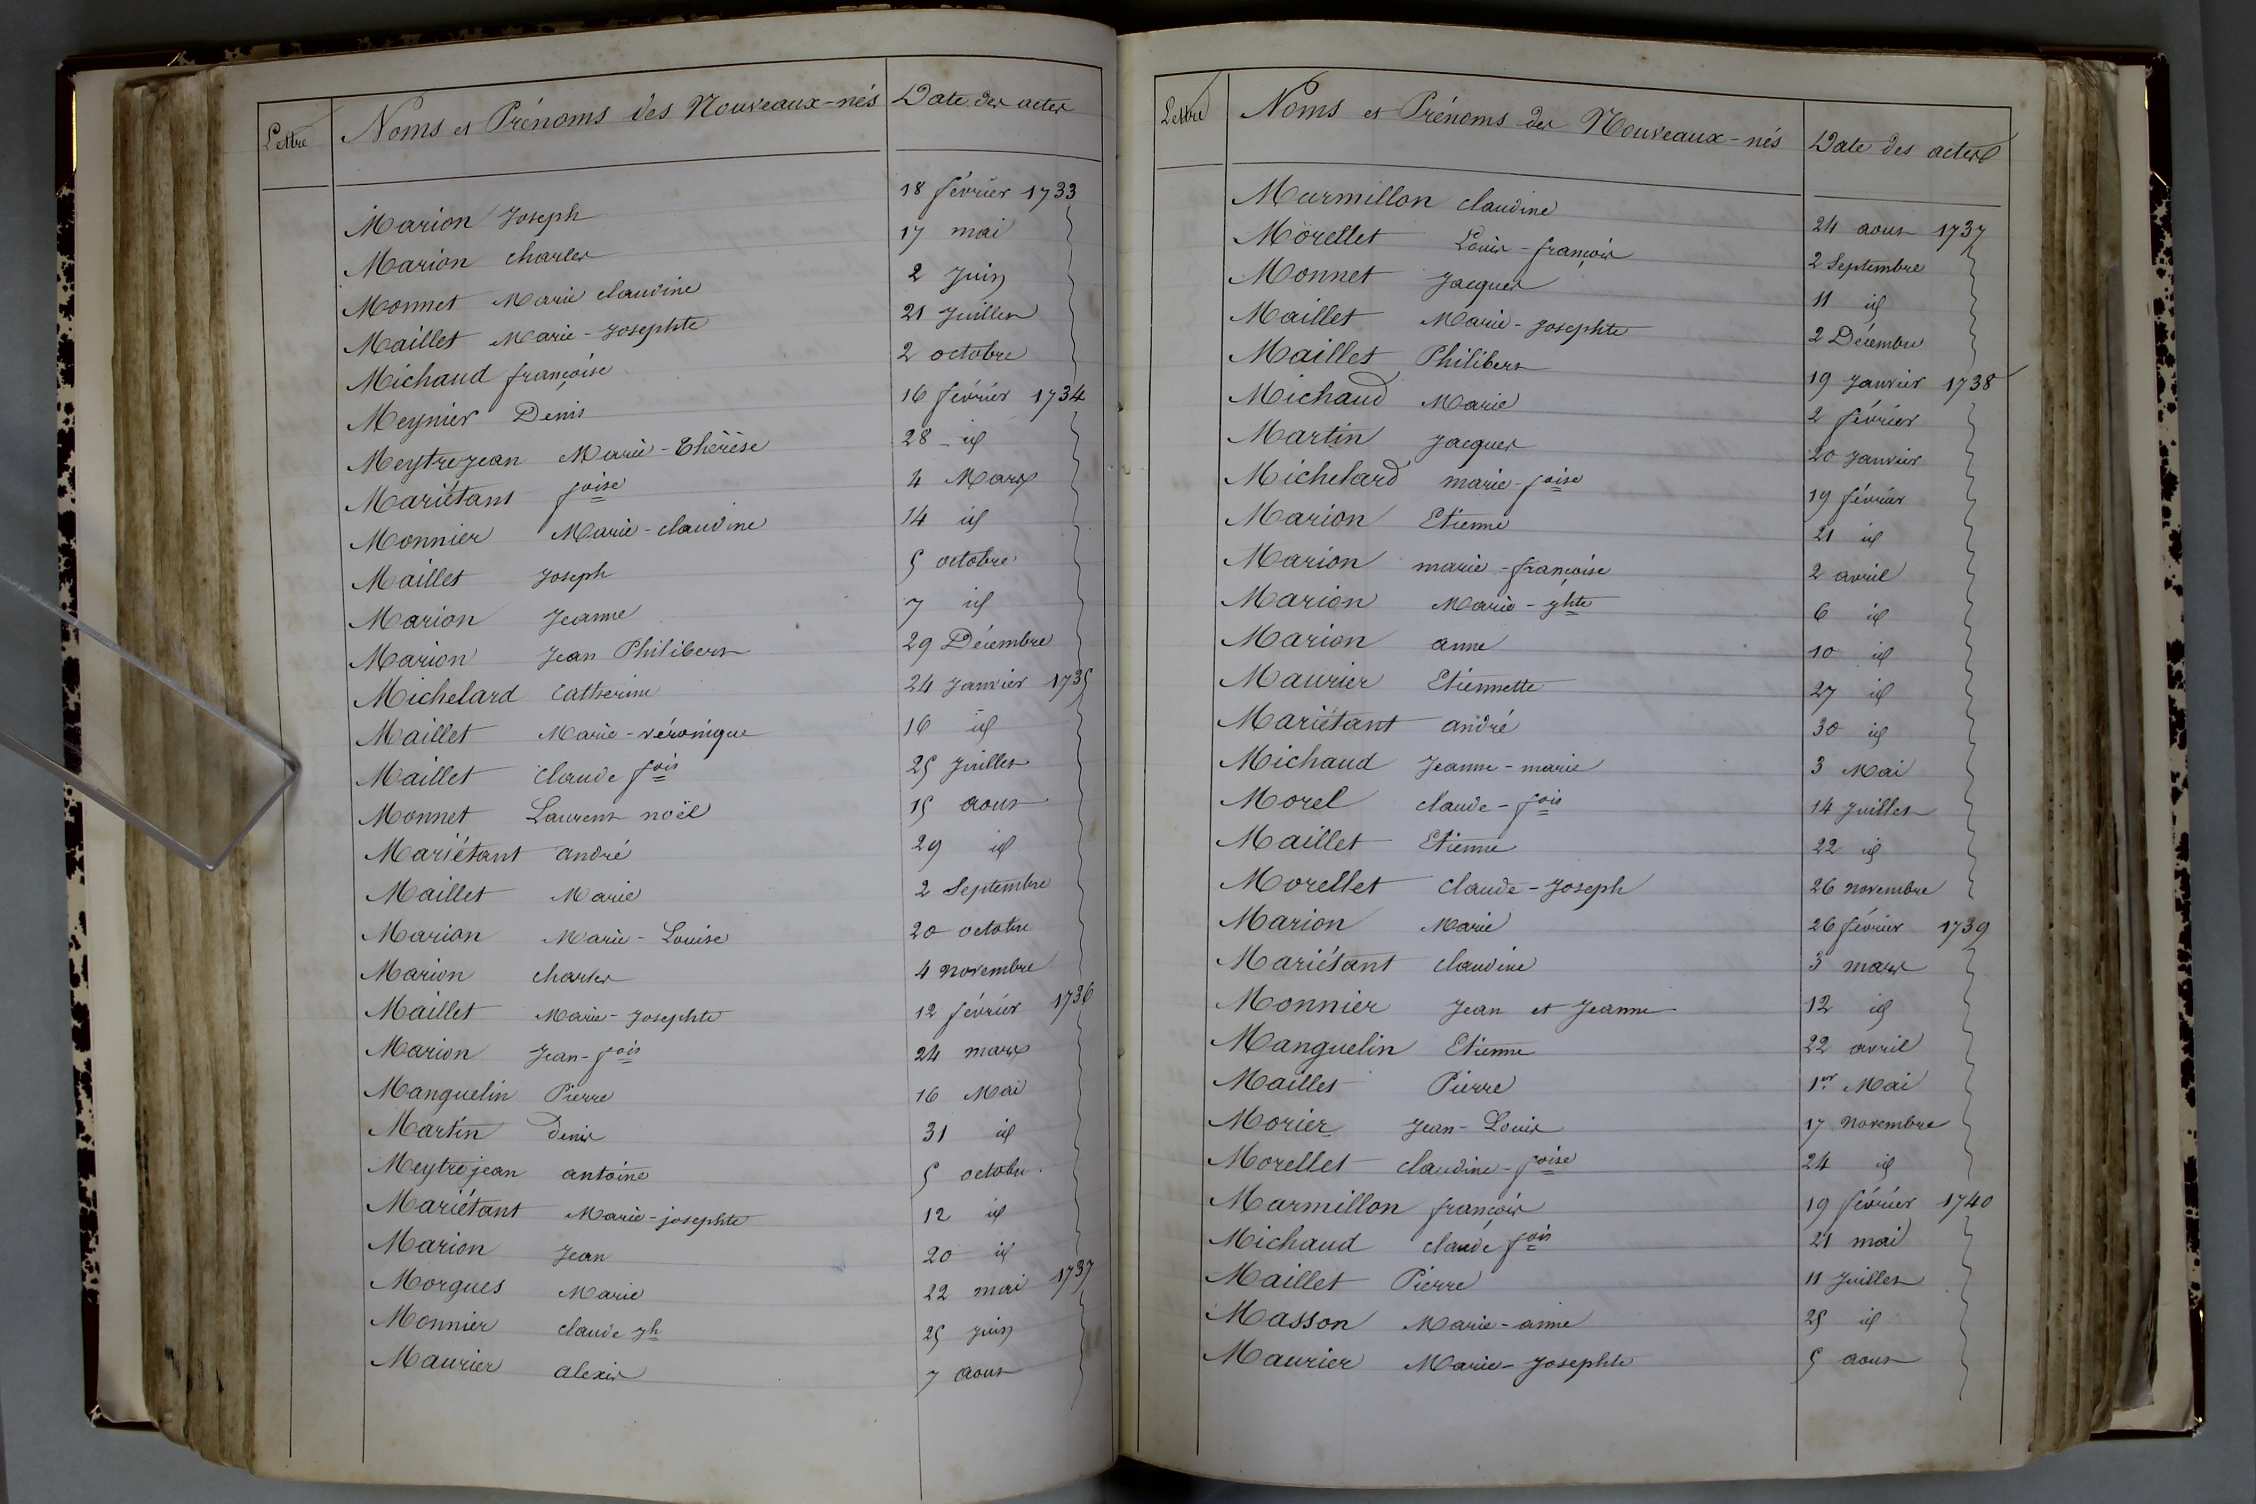 Lettre Noms et Prénoms des Nouveaux-nés Date des actes
Marion Joseph 18 février 1733
Marion charles 17 mai
Monnet Marie claudine 2 Juin
Maillet Marie-Josephte 21 Juillet
Michaud françoise 2 octobre
Meynier Denis 16 février 1734
Meytrejean Marie-Thérèse 28 id
Mariétant foise 4 Mars
Monnier Marie-claudine 14 id
Maillet Joseph 5 octobre
Marion Jeanne 7 id
Marion Jean Philibert 29 Décembre
Michelard Catherine 24 Janvier 1735
Maillet Marie-véronique 16 id
Maillet Claude fois 25 Juillet
Monnet Laurent noël 15 aout
Mariétant andré 29 id
Maillet Marie 2 Septembre
Marion Marie-Louise 20 octobre
Marion charles 4 novembre
Maillet Marie-Josephte 12 février 1736
Marion Jean-fois 24 mars
Manguelin Pierre 16 Mai
Martin Denis 31 id
Meytrejean antoine 5 octobre
Mariétant Marie-josephte 12 id
Marion Jean 20 id
Morgues Marie 22 mai 1737
Monnier claude jh 25 Juin
Maurier alexis 7 aout
Lettre Noms et Prénoms des Nouveaux-nés Date des actes
Marmillon claudine 24 aout 1737
Morellet Louis-françois 2 Septembre
Monnet Jacques 11 id
Maillet Marie-Josephte 2 Décembre
Maillet Philibert 19 Janvier 1738
Michaud Marie 2 février
Martin Jacques 20 Janvier
Michelard marie-foise 19 février
Marion Etienne 21 id
Marion marie-françoise 2 avril
Marion Marie-jhte 6 id
Marion anne 10 id
Maurier Etiennette 27 id
Mariétant andré 30 id
Michaud Jeanne-marie 3 Mai
Morel claude-fois 14 Juillet
Maillet Etienne 22 id
Morellet Claude-Joseph 26 novembre
Marion Marie 26 février 1739
Mariétant claudine 3 mars
Monnier Jean et Jeanne 12 id
Manguelin Etienne 22 avril
Maillet Pierre 1er Mai
Morier Jean-Louis 17 novembre
Morellet claudine-foise 24 id
Marmillon françois 19 février 1740
Michaud claude fois 21 mai
Maillet Pierre 11 Juillet
Masson Marie-anne 25 id
Maurier Marie-Josephte 5 aout